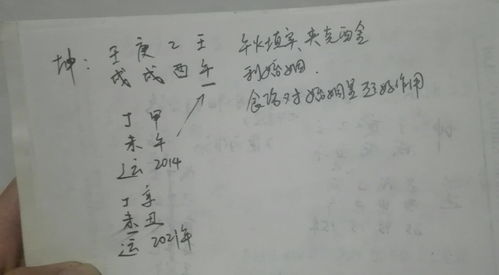 坤：壬庚乙壬
戌戌酉午
午火填实，夹克酉金
利婚姻．
食语对婚姻星起好作用
丁甲
未午
运 2014
丁辛
未丑
运 2021年